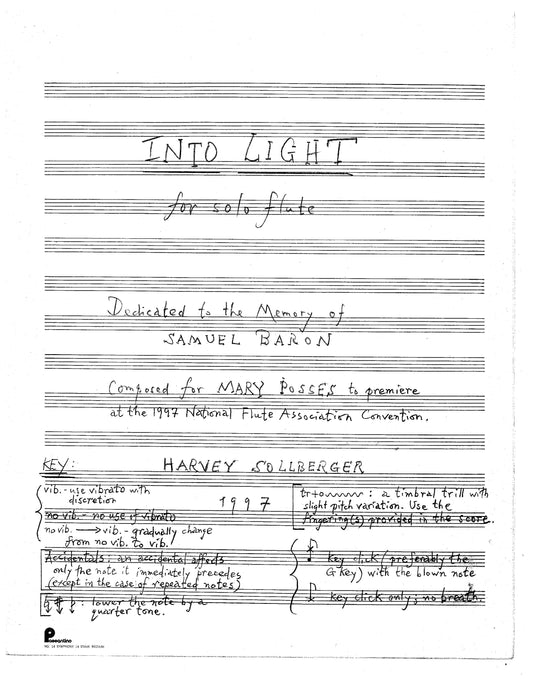 INTO LIGHT
for solo flute
Dedicated to the Memory of
SAMUEL BARON
Composed for MARY POSSES to premiere
at the 1997 National Flute Association Convention.
KEY:
HARVEY SOLLBERGER
1997
vib. - use vibrato with
discretion
no vib. - no use of vibrato
no vib. → vib. - gradually change
from no vib. to vib.
Accidentals: an accidental affects
only the note it immediately precedes
(except in the case of repeated notes)
: lower the note by a
quarter tone.
: a timbral trill with
slight pitch variation. Use the
fingering(s) provided in the score.
key click (preferably the
G key) with the blown note
key click only; no breath.
Passantino